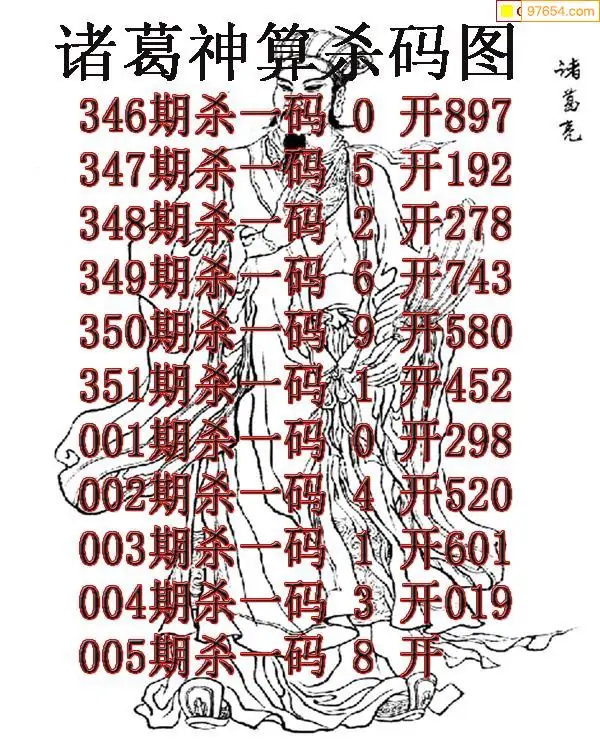 97654.com
诸葛神算杀码图
诸葛亮
346期杀一码 0 开897
347期杀一码 5 开192
348期杀一码 2 开278
349期杀一码 6 开743
350期杀一码 9 开580
351期杀一码 1 开452
001期杀一码 0 开298
002期杀一码 4 开520
003期杀一码 1 开601
004期杀一码 3 开019
005期杀一码 8 开